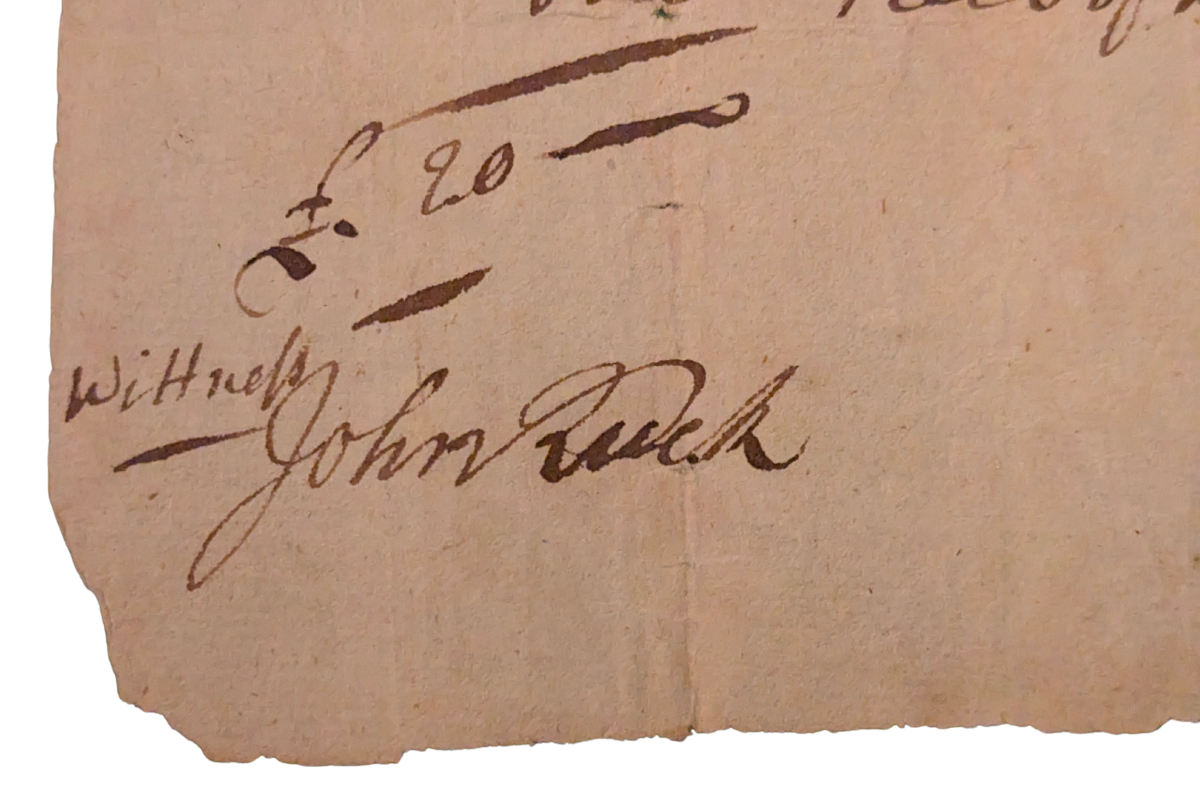 £. 20
Wittness
John Ruck